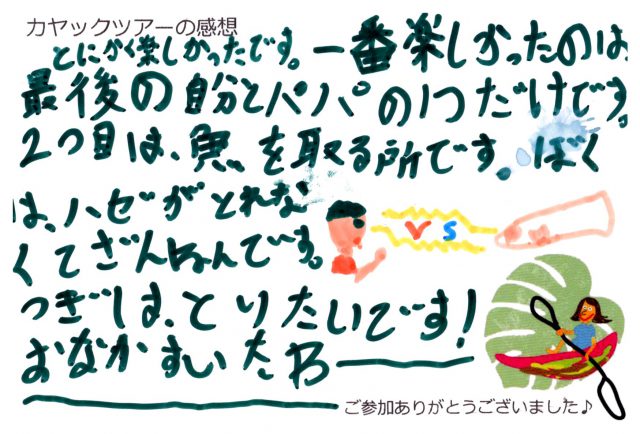 カヤックツアーの感想
とにかく楽しかったです。一番楽しかったのは
最後の自分とパパの1つだけです。
2つ目は、魚を取る所です。ぼく
は、ハゼがとれな
くてざんねんです。
VS
つぎは、とりたいです!
おなかすいたわ――
ご参加ありがとうございました♪